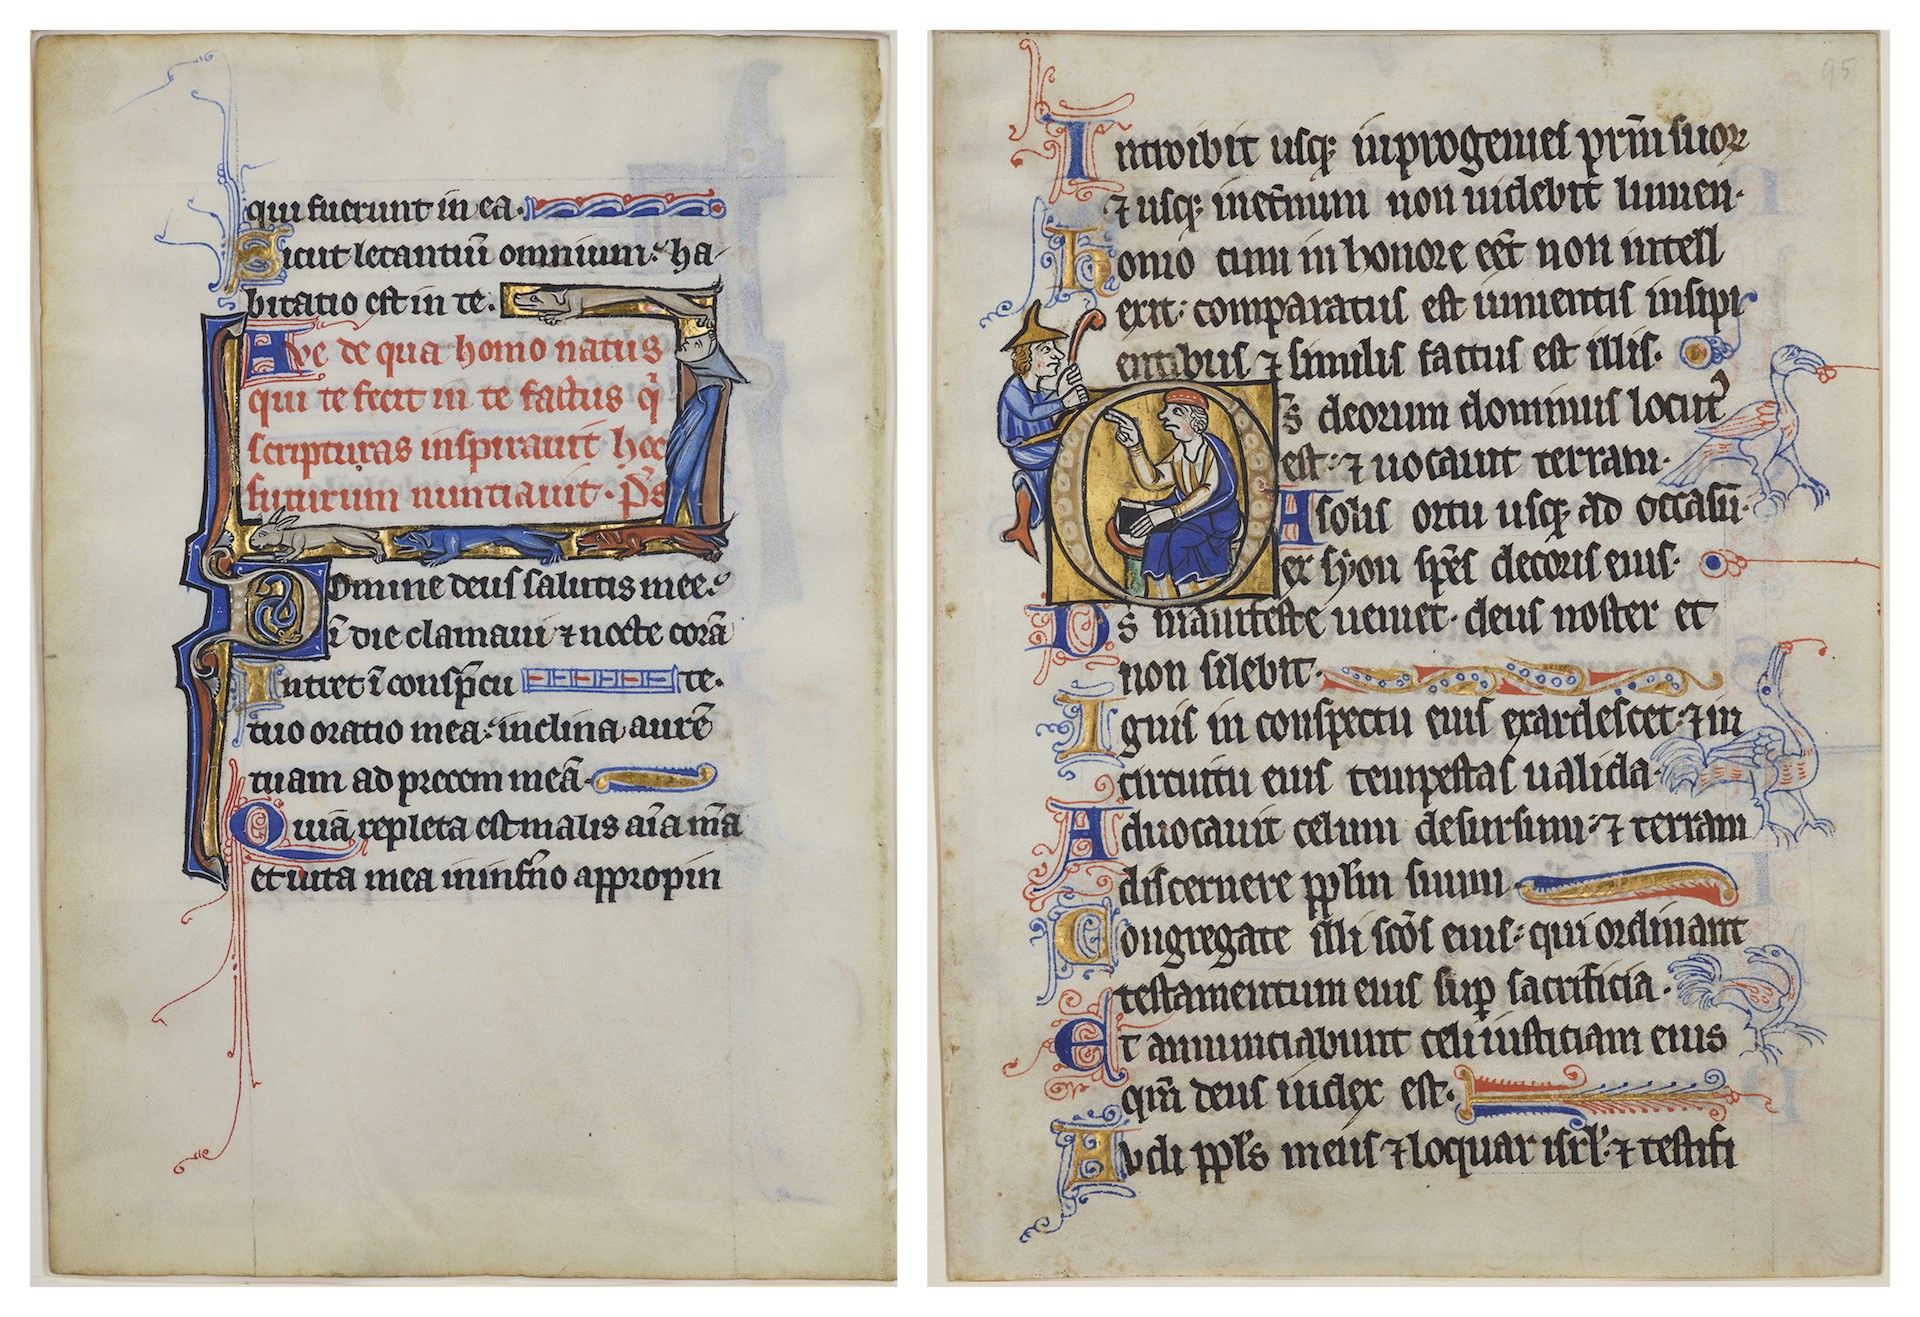 qui fuerunt in ea.
Sicut letantiũ omnium: ha
bitatio est in te.
Ave de qua homo natus
qui te fecit in te factus q̃
scripturas inspirauit hoc
futurum nuntiauit. P̃s
Domine deus salutis mee:
ĩ die clamaui ⁊ nocte corã
Intret ĩ consp̃cu te.
tuo oratio mea: inclina aurẽ
tuam ad precem meã.
Quiã repleta est malis aĩa m̃a
et uita mea in inf̃no appropin
95
Introibit usq; in progenies pr̃m suoꝝ
⁊ usq; inet̃num non uidebit lumen.
homo cum in honore eẽt non intell
exit: comparatus est iumentis insipi
entibus ⁊ similis factus est illis.
Ds deorum dominus locut᷒
est: ⁊ uocauit terram.
A solis ortu usq; ad occasũ.
ex syon sp̃es decoris eius.
Ds manifeste ueniet. deus noster et
non silebit.
Ignis in conspectu eius exardescet: ⁊ in
circuitu eius tempestas ualida.
Aduocauit celum desursum: ⁊ terram
discernere pp̃lm suum.
Congregate illi sc̃os eius: qui ordinant
testamentum eius suꝑ sacrificia.
Et annunciabunt celi iusticiam eius
qm̃ deus iudex est.
Audi pp̃ls meus ⁊ loquar isrl̃: ⁊ testifi